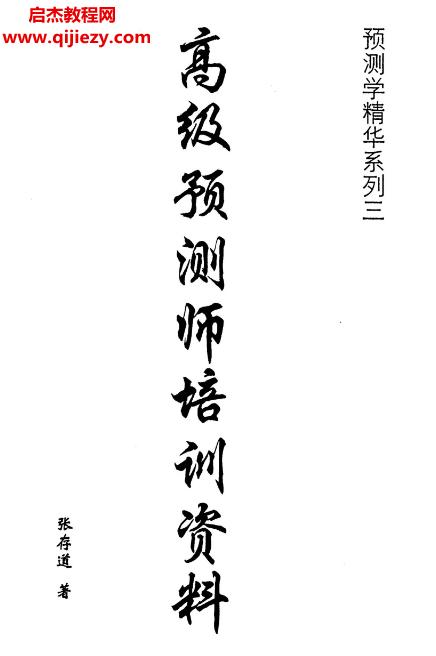 启杰教程网
www.qijiezy.com
预测学精华系列三
高级预测师培训资料
张存道 著